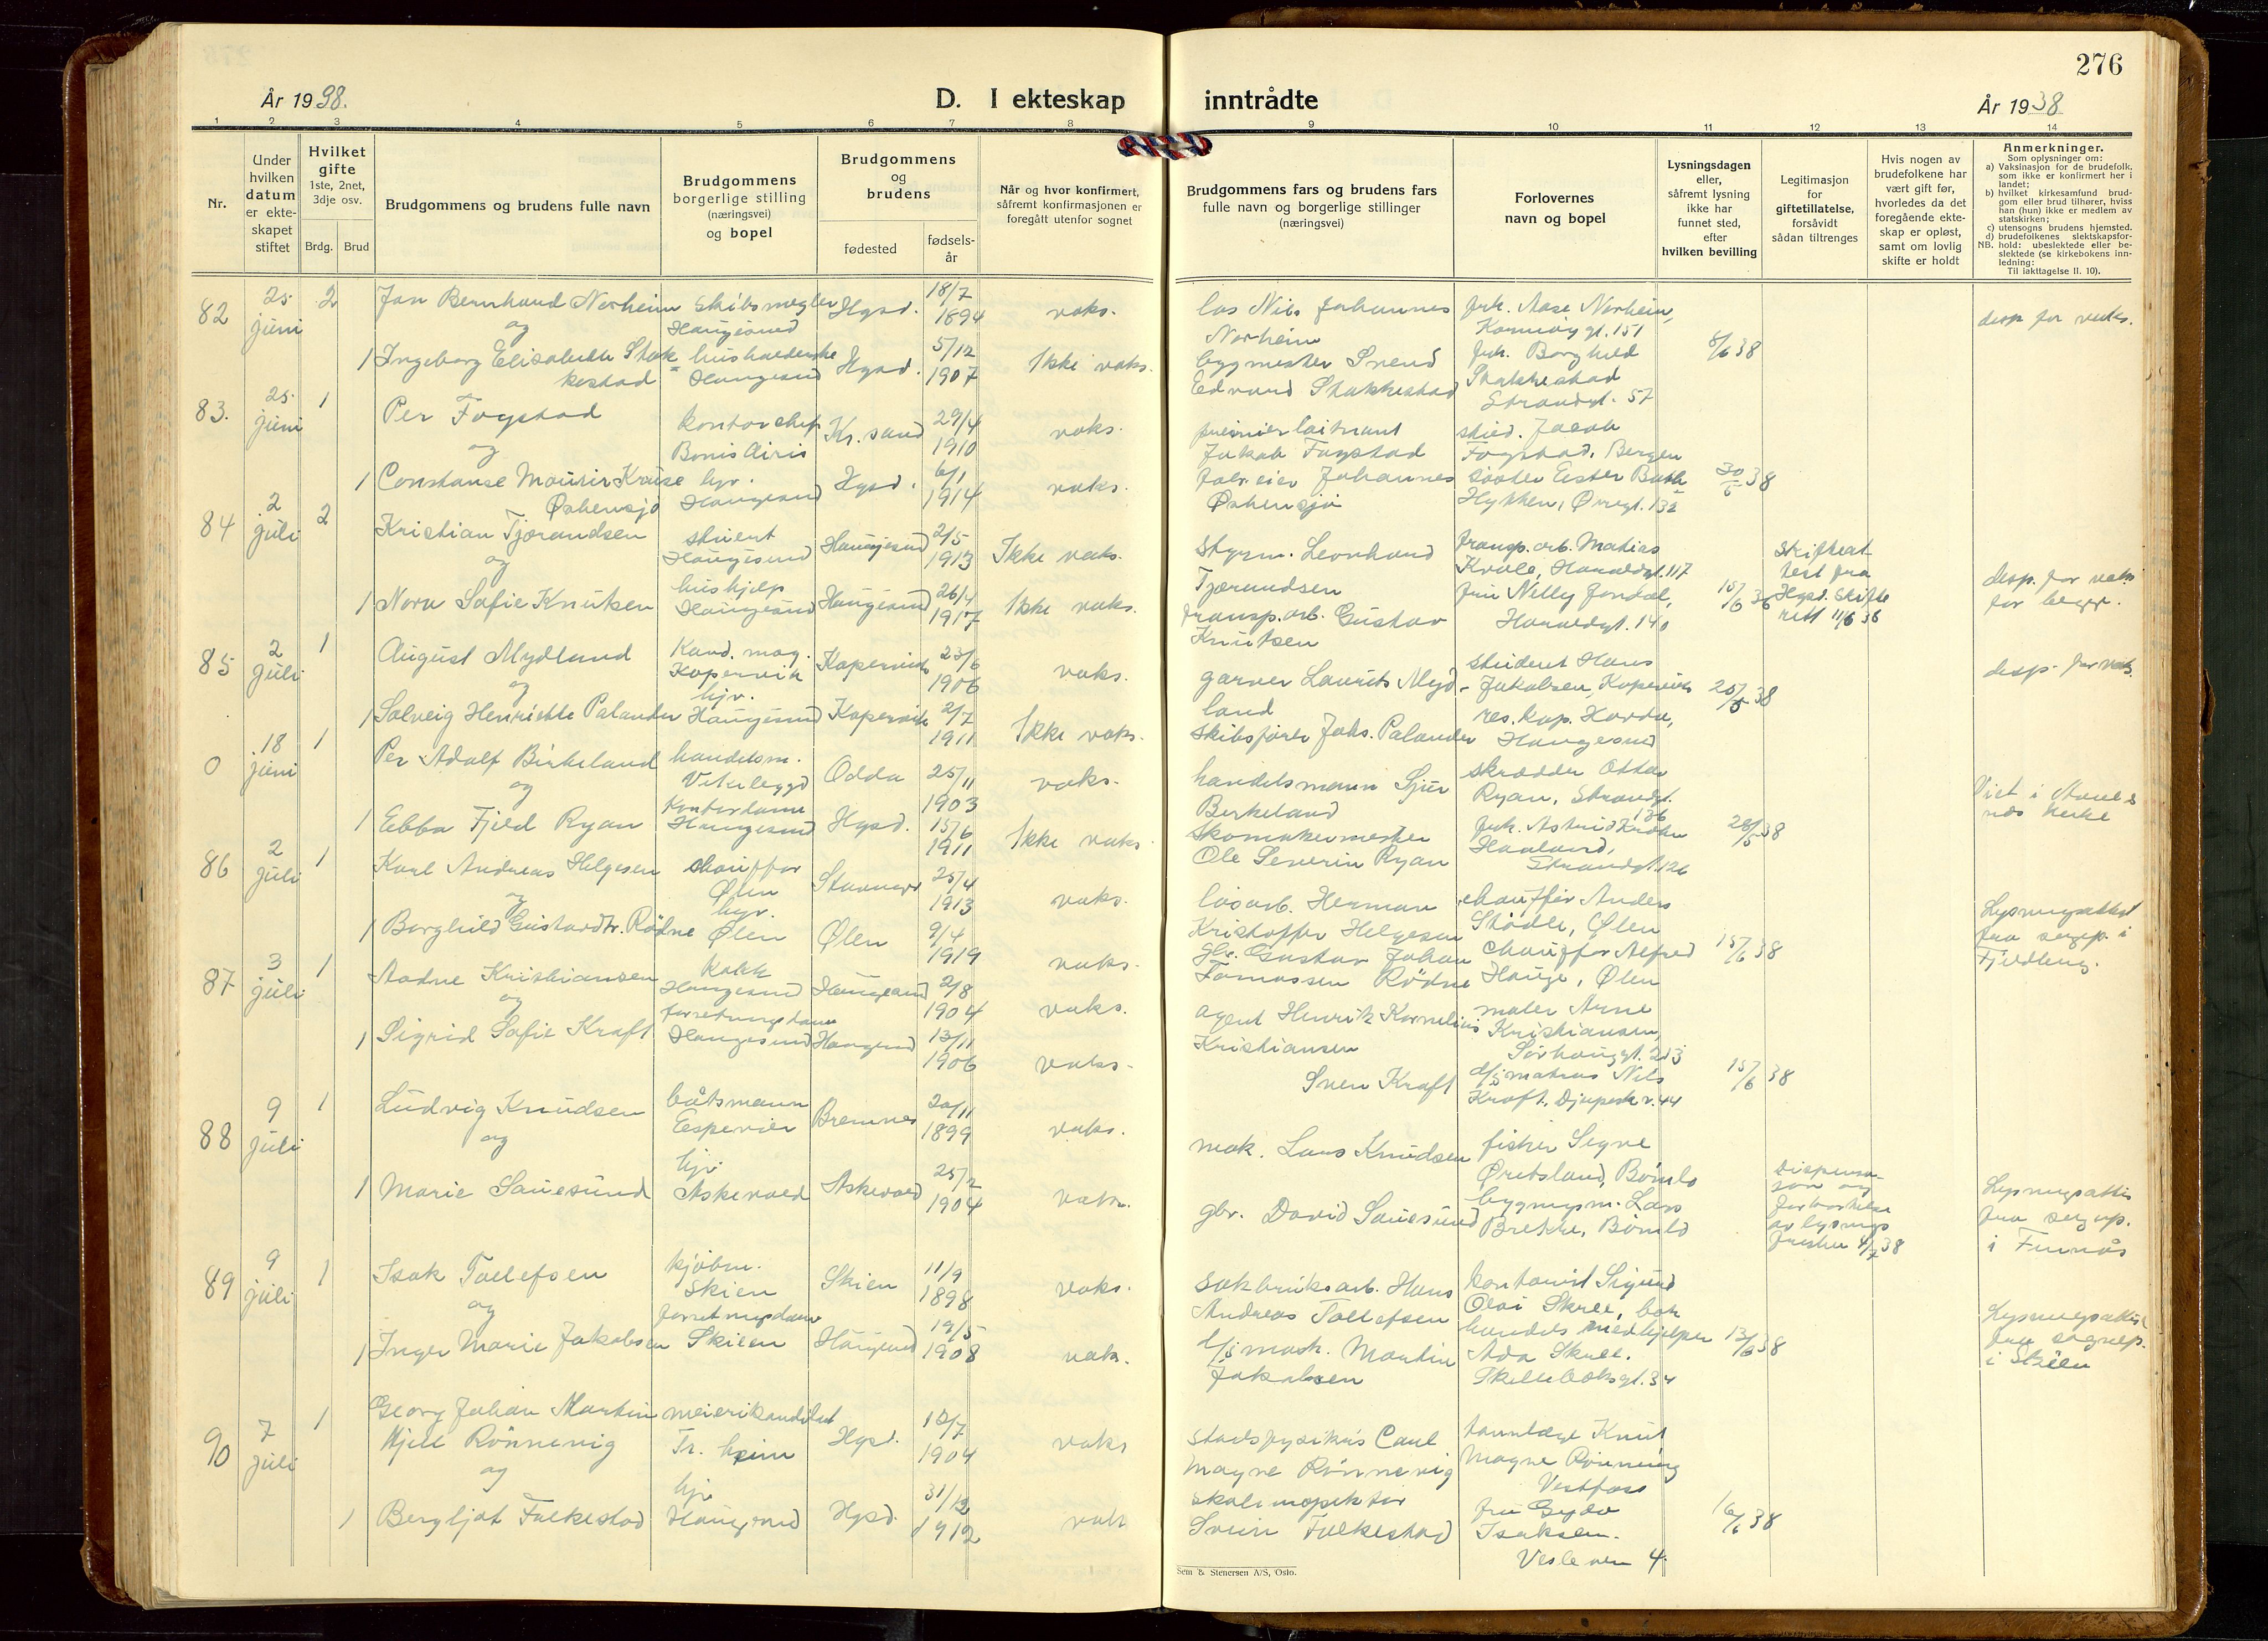 276
År 1938.
D. I ekteskap inntrådte
År 1938
1 2 3 4 5 6 7 8 9 10 11 12 13 14
Nr.
Under
hvilken
datum
er ekte-
skapet
stiftet
Hvilket
gifte
1ste, 2net,
3dje osv.
Brdg. Brud
Brudgommens og brudens fulle navn
Brudgommens
borgerlige stilling
(næringsvei)
og bopel
Brudgommens
og
brudens
fødested
fødsels-
år
Når og hvor konfirmert,
såfremt konfirmasjonen er
foregått utenfor sognet
Brudgommens fars og brudens fars
fulle navn og borgerlige stillinger
(næringsvei)
Forlovernes
navn og bopel
Lysningsdagen
eller,
såfremt lysning
ikke har
funnet sted,
efter
hvilken bevilling
Legitimasjon
for
giftetillatelse,
forsåvidt
sådan tiltrenges
Hvis nogen av
brudefolkene har
vært gift før,
hvorledes da det
foregående ekte-
skap er opløst,
samt om lovlig
skifte er holdt
Anmerkninger.
Som oplysninger om:
a) Vaksinasjon for de brudefolk,
som ikke er konfirmert her i
landet;
b) hvilket kirkesamfund brud-
gom eller brud tilhører, hviss
han (hun) ikke er medlem av
statskirken;
c) utensogns brudens hjemsted.
d) brudefolkenes slektskapsfor-
hold: ubeslektede eller be-
slektede (se kirkebokens inn-
ledning:
NB. Til iakttagelse II. 10).
82
25.
juni
2
Jan Bernhard Norheim
og
1 Ingeborg Elisabeth Stak
kestad
skibsmegler
Haugesund
husholderske
Haugesund
Hgsd.
Hgsd.
18/7
1894
5/12
1907
vaks.
Ikke vaks.
los Nils Johannes
Norheim
byggmester Svend
Edvard Stakkestad
frk. Aase Norheim,
Karmøygt. 151
frk. Borghild
Stakkestad
Strandgt. 57
8/6 38
desp for vaks.
83.
25.
juni
1
Per Fogstad
og
1 Constanse Mourir Kruse
Øshensjø
kontorchef
Bonis Airis
hjv.
Haugesund
Kr.sand
Hgsd.
29/4
1910
6/1
1914
vaks.
vaks.
premierløitnant
Jakob Fogstad
fabr.eier Johannes
Øshensjø
stud. Jacob
Fogstad, Bergen
søster Ester Buth
Hykken, Øvregt. 132
30/5 38
84
2
juli
2
Kristian Tjørandsen
og
1 Nora Sofie Knutsen
stuert
Haugesund
hushjelp
Haugesund
Haugesund
Haugesund
2/5
1913
26/4
1917
Ikke vaks.
Ikke vaks.
styrm. Leonhard
Tjørandsen
transp.arb. Gustav
Knutsen
transp.arb. Mathias
Kvale, Haraldsgt. 117
fru Nelly Jondal,
Haraldsgt. 140
15/6 38
skifteat
test fra
Hgsd. skifte
rett 11/6 38
desp. for vaks
for begge.
85
2
juli
1
August Mydland
og
1 Solveig Henriette Palander
Kand. mag.
Kopervik
hjv.
Haugesund
Kopervik
Kopervik
23/6
1906
2/7
1911
vaks.
Ikke vaks.
garver Laurits Myd-
land
skibsfører Johs. Palander
student Hans
Jakobsen, Kopervik
res.kap. Horda,
Haugesund
25/5 38
desp. for vaks.
0
18
juni
1
Per Adolf Birkeland
og
1 Ebba Fjeld Ryan
handelsm.
Vikebygd
Kontordame
Haugesund
Odda
Hgsd.
25/11
1903
15/6
1911
vaks.
Ikke vaks
handelsmann Sjur
Berkeland
skomakermester
Ole Severin Ryan
skredder Ottar
Ryan, Strandgt.
136
Haaland,
Strandgt. 126
28/5 38
86
2
juli
1
Karl Andreas Helgesen
og
1 Borghild Gustavdtr. Rödne
chauffør
Ølen
hjv.
Ølen
Stavanger
Ølen
25/4
1913
9/4
1919
vaks.
vaks.
løsarb. Herman
Kristoffer Helgesen
Gbr. Gustav Johan
Tomassen Rödne
chauffør Anders
Stødle, Ølen
chauffør Alfred
Hauge, Ølen
15/6 38
Lysningsattest
fra sognep. i
Fjeldberg.
87
3
juli
1
Aadne Kristiansen
og
1 Sigrid Sofie Kraft
kokk
Haugesund
forretningsdame
Haugesund
Haugesund
Haugesund
2/8
1904
13/11
1906
vaks.
vaks.
agent Henrik Kornelius
Kristiansen
Sven Kraft
maler Arne
Kristiansen,
Sørhauggt. 213
d/s matros Nils
Kraft, Djupaskv. 44
15/6 38
88
9
juli
1
Ludvig Knudsen
og
1 Marie Sauesund
båtsmann
Espevær
hjv
Askevold
Bremnes
Askevold
20/11
1899
25/2
1904
vaks.
vaks.
mek. Lars Knudsen
gbr. David Sauesund
fisker Signe
Øretsland, Bømlo
byggmgsm. Lars
Brekke, Bømlo
Dispensa-
sjon og
forkortelse
av lysnings
fristen 4/7 38
Lysningsattest
fra sognep.
i Finnås
89
9
juli
1
Isak Tollefsen
og
1 Inger Marie Jakobsen
kjøbm.
Skien
forretningsdame
Skien
Skien
Haugesund
11/9
1898
19/5
1908
vaks.
vaks.
sakbruksarb. Hans
Andreas Tollefsen
d/s mask. Martin
Jakobsen
kontorist Sigurd
Olai Skree, bok
handels medhjelper
Ada Skree.
Skillebæksgt. 34
13/6 38
Lysningsattest
fra sognep.
i Skien
90
7
juli
1
Georg Johan Martin
Mjell Rønnevig
og
1 Bergljot Falkestad
meierikandidat
Tr. heim
hjv
Haugesund
Hgsd.
Hgsd.
12/7
1904
31/12
1912
vaks
vaks
stadsfysikus Carl
Magne Rønnevig
skoleinspektør
Svein Falkestad
tannlæge Knut
Magne Rønnevig
Vestfoss
fru Gyda
Isaksen.
Vesleveien 4.
16/6 38
Sem & Stenersen A/S, Oslo.